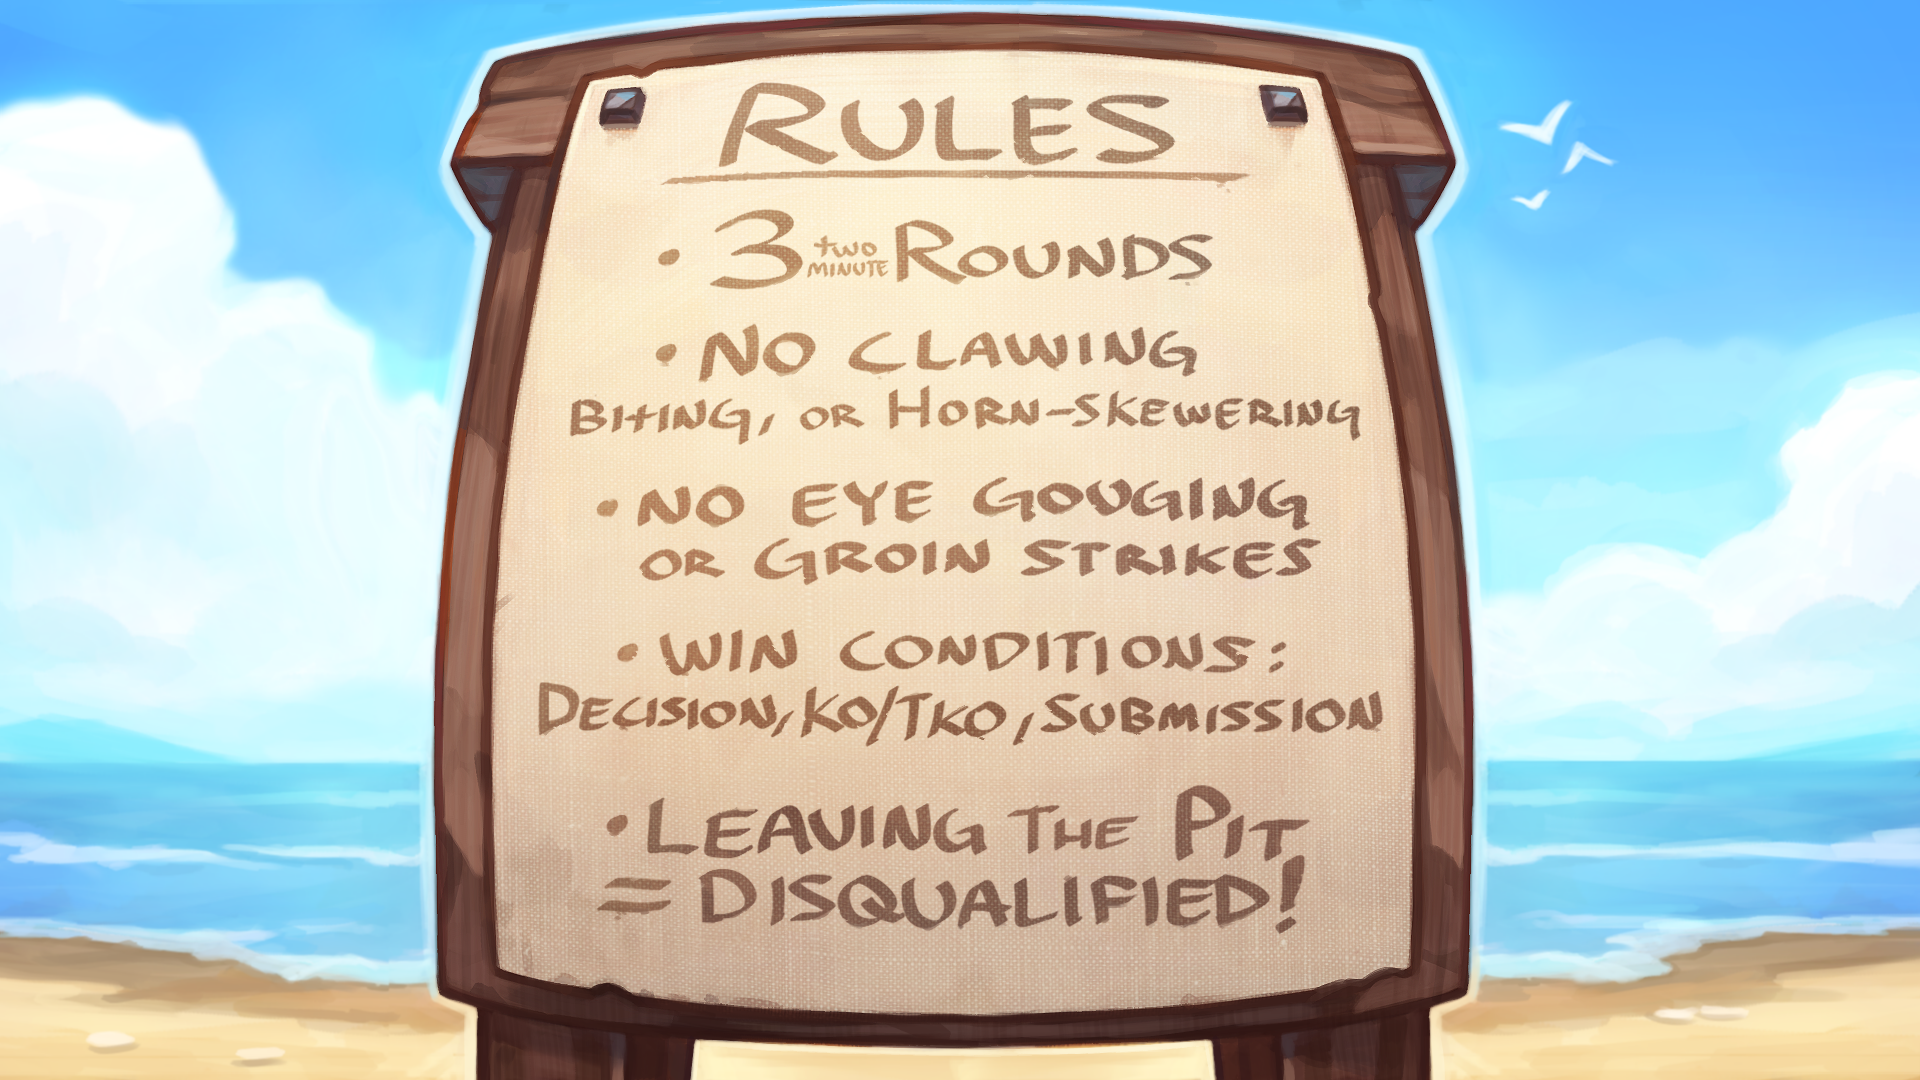 RULES
• 3 two minute Rounds
• No Clawing
Biting, or Horn-skewering
• No Eye Gouging
or Groin Strikes
• Win Conditions:
Decision, KO/TKO, Submission
• Leaving The Pit
= Disqualified!